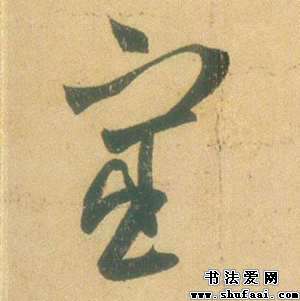 室
书法爱网
www.shufaai.com